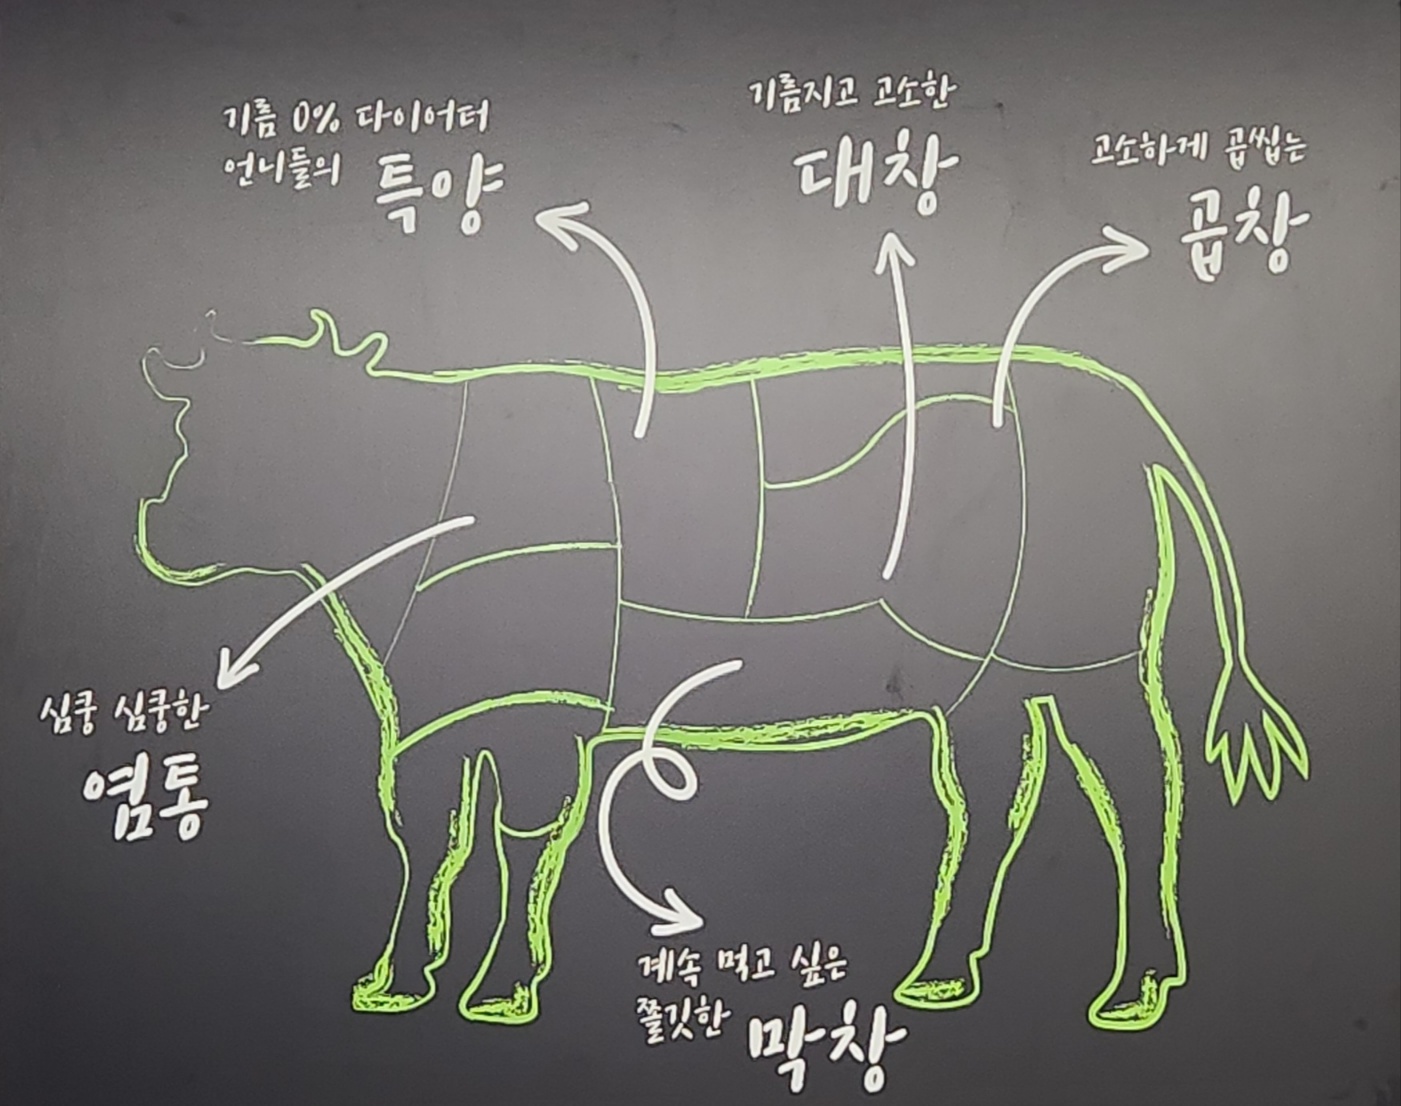 기름 0% 다이어터
언니들의 특양
기름지고 고소한
대창
고소하게 곱씹는
곱창
심쿵 심쿵한
염통
계속 먹고 싶은
쫄깃한 막창